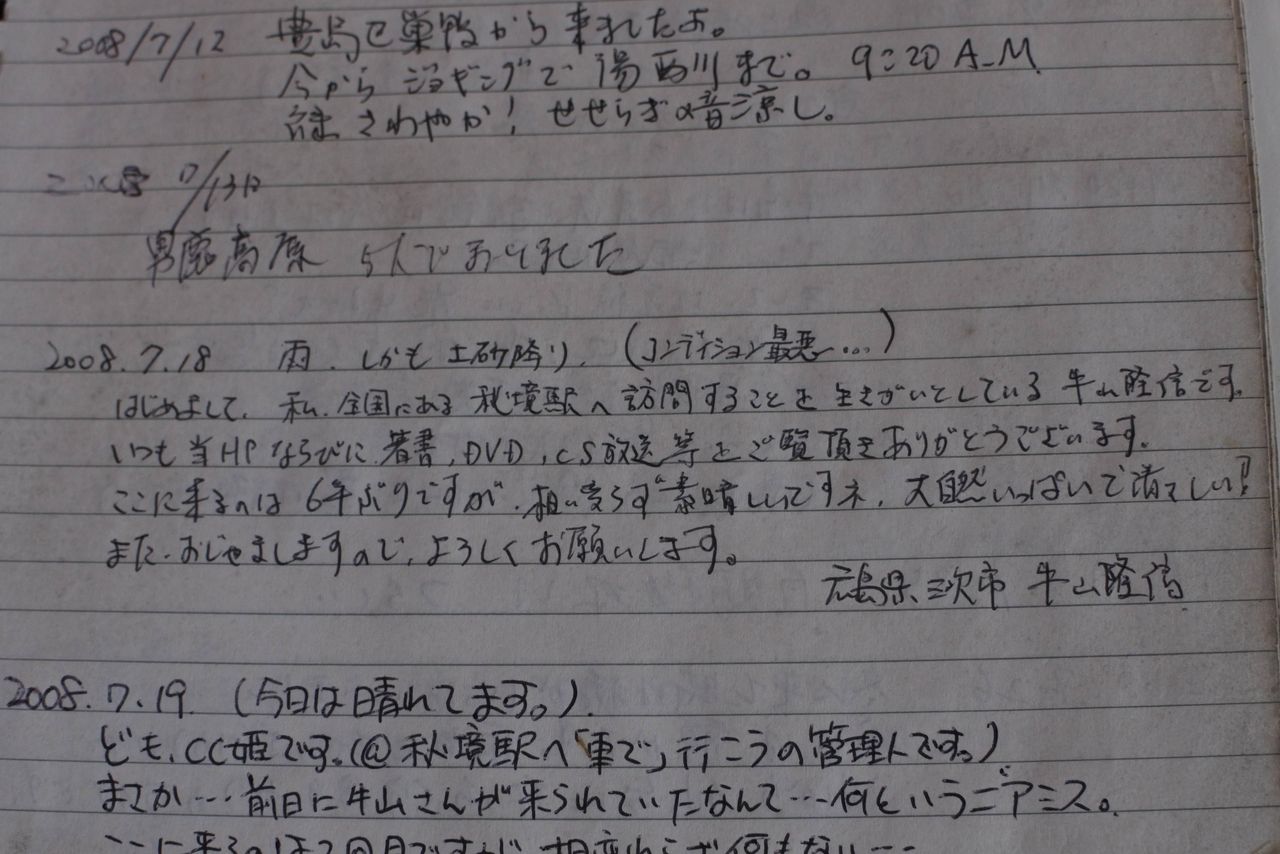 2008/7/12 豊島区巣鴨から来ましたよ。
今からジョギングで湯西川まで。 9:20 A.M
緑さわやか! せせらぎの音涼し。
7/13日
男鹿高原 5人でおりました
2008.7.18 雨. しかも土砂降り. (コンディション最悪…)
はじめまして. 私. 全国にある秘境駅へ訪問することを生きがいとしている牛山隆信です.
いつも当HPならびに著書, DVD, CS放送等をご覧頂きありがとうございます.
ここに来るのは6年ぶりですが. 相い変らず素晴しいですネ. 大自然いっぱいで清々しい!
また. おじゃましますので, よろしくお願いします。
広島県三次市 牛山隆信
2008.7.19 (今日は晴れてます。).
ども. CC姫です。(@秘境駅へ「車で」行こうの管理人です。)
まさか…前日に牛山さんが来られていたなんて…何というニアミス。
ここに来るのは2回目ですが, 相変わらず何もない…